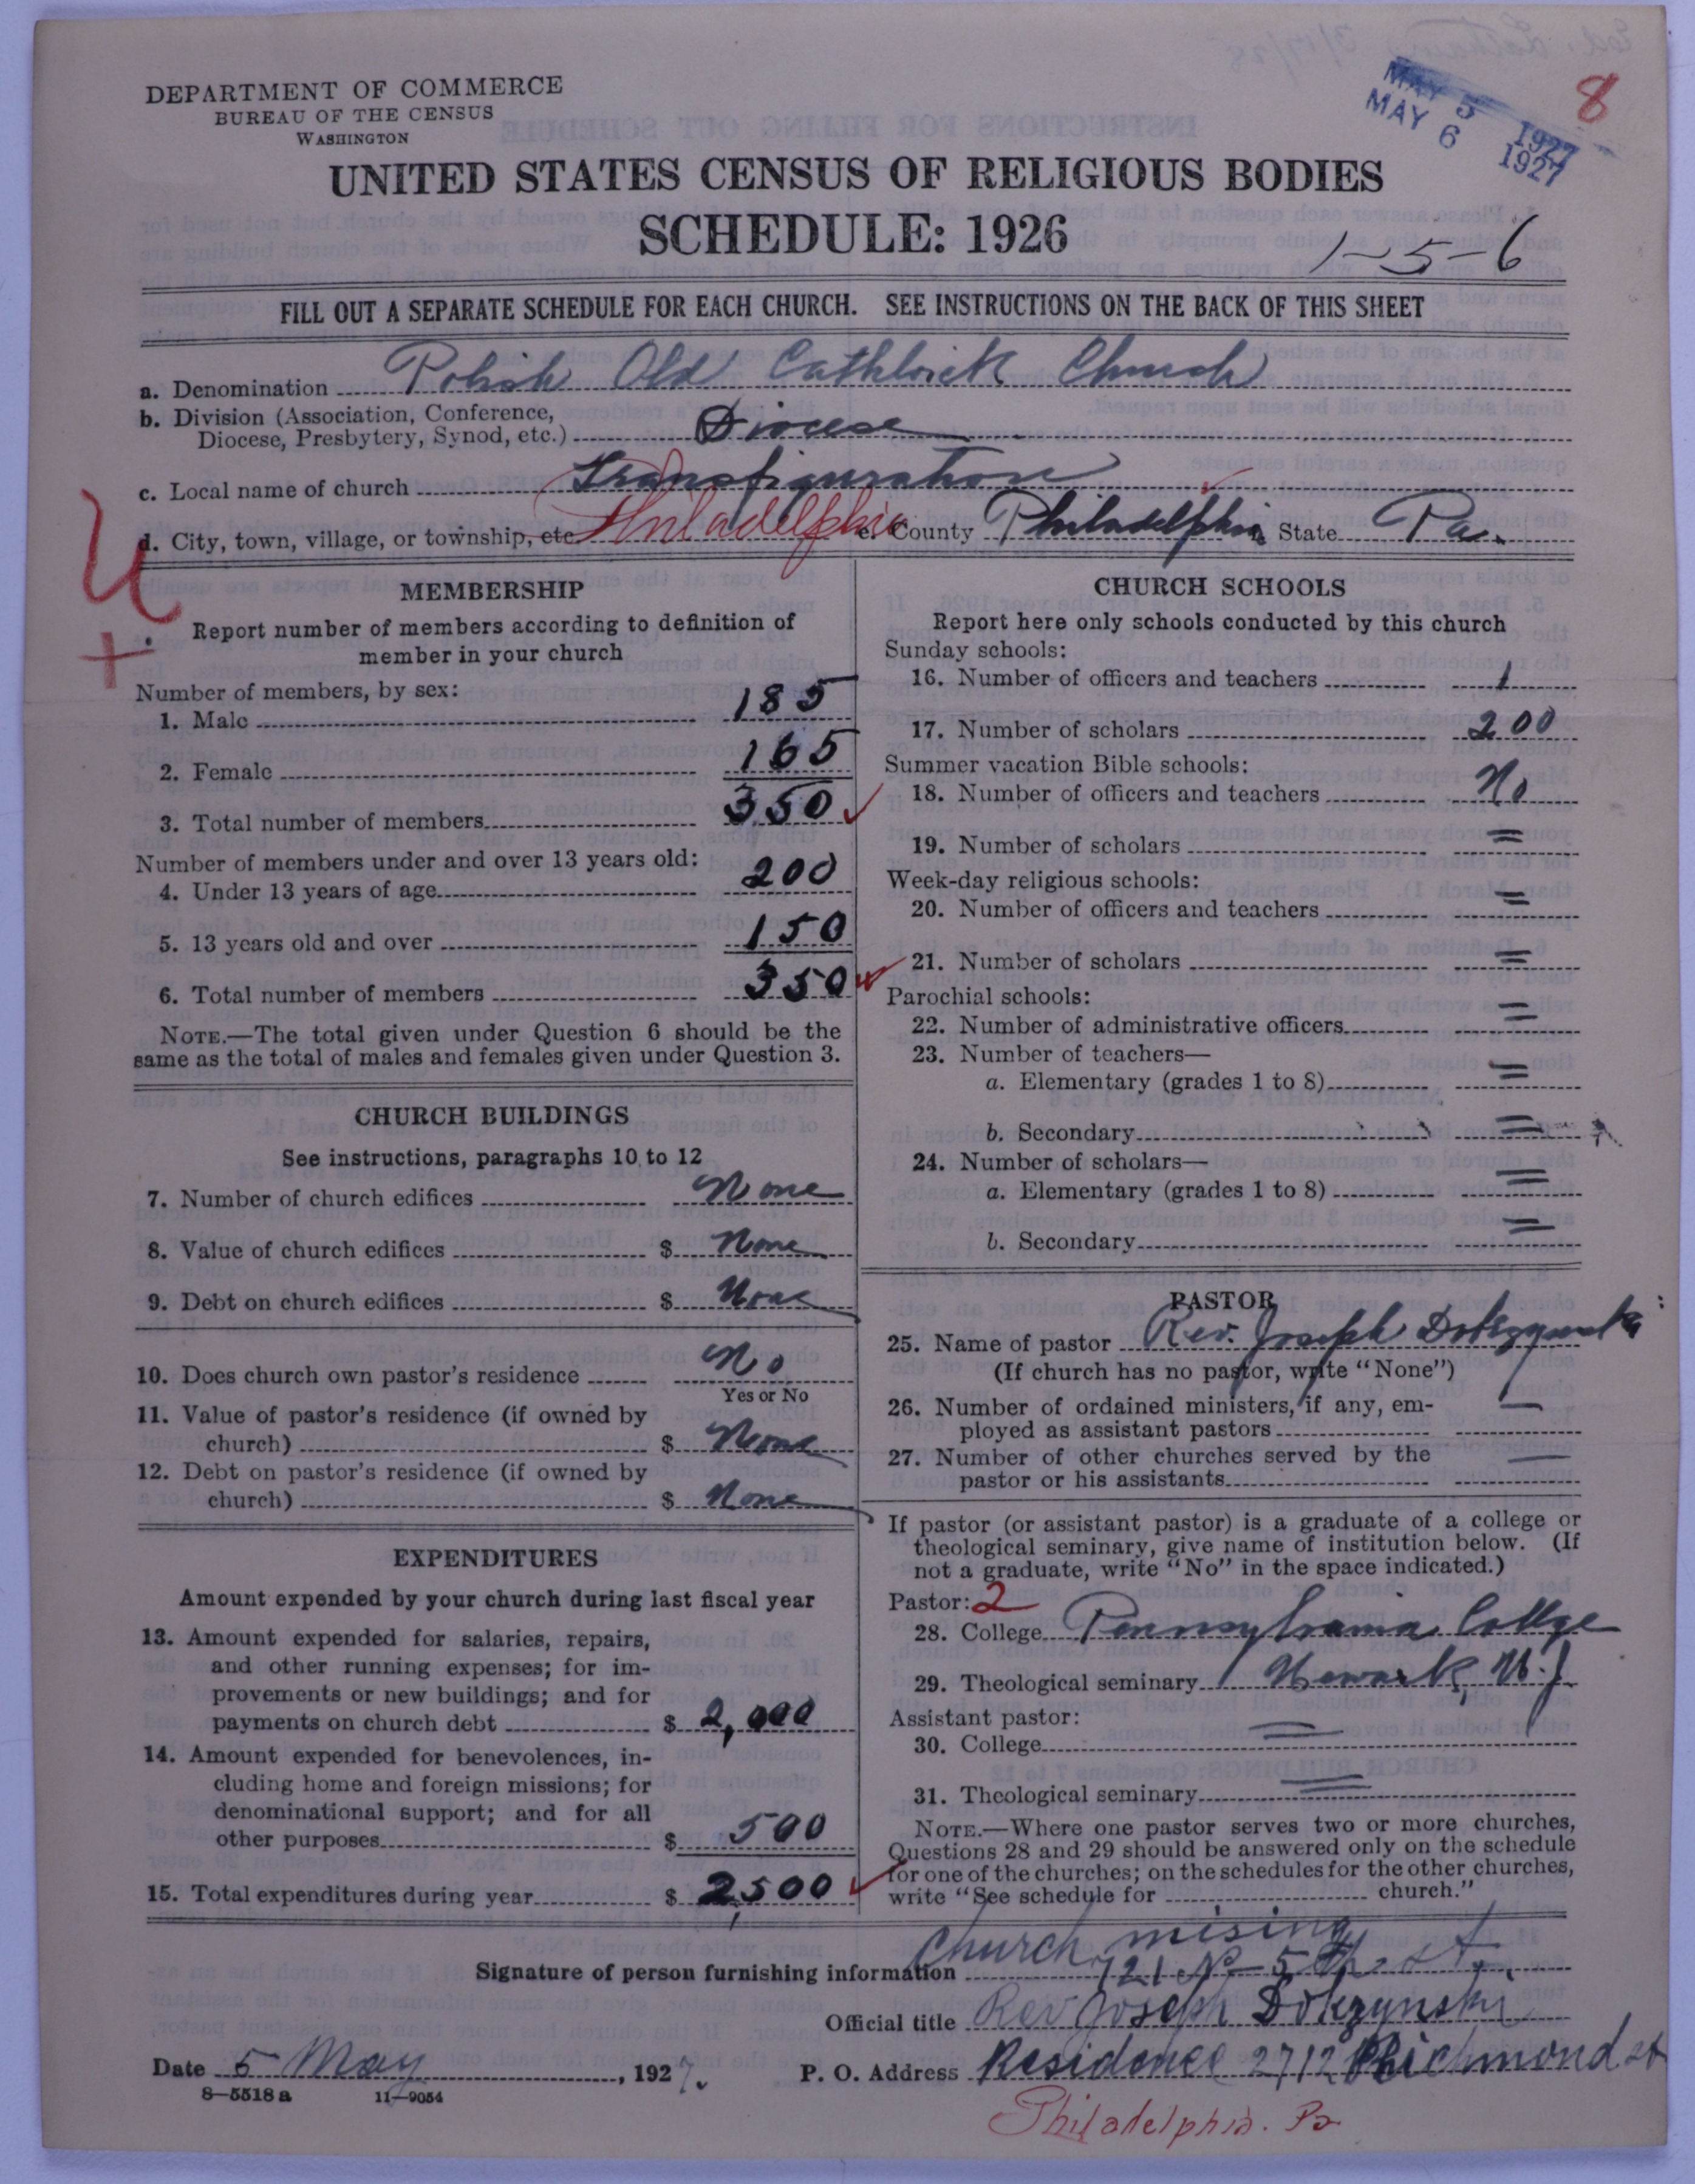 DEPARTMENT OF COMMERCE
BUREAU OF THE CENSUS
WASHINGTON
MAY 5 1927
MAY 6 1927
8
UNITED STATES CENSUS OF RELIGIOUS BODIES
SCHEDULE: 1926
1-5-6
FILL OUT A SEPARATE SCHEDULE FOR EACH CHURCH. SEE INSTRUCTIONS ON THE BACK OF THIS SHEET
a. Denomination Polish Old Catholick Church
b. Division (Association, Conference,
Diocese, Presbytery, Synod, etc.) Diocese
c. Local name of church Transfiguration
d. City, town, village, or township, etc. Philadelphia e. County Philadelphia State Pa.
MEMBERSHIP
Report number of members according to definition of
member in your church
Number of members, by sex:
1. Male 185
2. Female 165
3. Total number of members 350
Number of members under and over 13 years old:
4. Under 13 years of age 200
5. 13 years old and over 150
6. Total number of members 350
NOTE.—The total given under Question 6 should be the
same as the total of males and females given under Question 3.
CHURCH BUILDINGS
See instructions, paragraphs 10 to 12
7. Number of church edifices None
8. Value of church edifices $ None
9. Debt on church edifices $ None
10. Does church own pastor's residence No
Yes or No
11. Value of pastor's residence (if owned by
church) $ None
12. Debt on pastor's residence (if owned by
church) $ None
EXPENDITURES
Amount expended by your church during last fiscal year
13. Amount expended for salaries, repairs,
and other running expenses; for im-
provements or new buildings; and for
payments on church debt $ 2,000
14. Amount expended for benevolences, in-
cluding home and foreign missions; for
denominational support; and for all
other purposes $ 500
15. Total expenditures during year $ 2,500
CHURCH SCHOOLS
Report here only schools conducted by this church
Sunday schools:
16. Number of officers and teachers 1
17. Number of scholars 200
Summer vacation Bible schools:
18. Number of officers and teachers No
19. Number of scholars =
Week-day religious schools:
20. Number of officers and teachers =
21. Number of scholars =
Parochial schools:
22. Number of administrative officers =
23. Number of teachers—
a. Elementary (grades 1 to 8) =
b. Secondary =
24. Number of scholars—
a. Elementary (grades 1 to 8) =
b. Secondary =
PASTOR
25. Name of pastor Rev. Joseph
(If church has no pastor, write "None")
26. Number of ordained ministers, if any, em-
ployed as assistant pastors —
27. Number of other churches served by the
pastor or his assistants —
If pastor (or assistant pastor) is a graduate of a college or
theological seminary, give name of institution below. (If
not a graduate, write "No" in the space indicated.)
Pastor: 2
28. College Pennsylvania College
29. Theological seminary Newark, N.J.
Assistant pastor:
30. College =
31. Theological seminary =
NOTE.—Where one pastor serves two or more churches,
Questions 28 and 29 should be answered only on the schedule
for one of the churches; on the schedules for the other churches,
write "See schedule for church."
Church mising
Signature of person furnishing information 721 N- 5th st.
Official title Rev Joseph
Date 5 May, 1927. P. O. Address Residence 2712 Richmond st
8—5518 a 11—9054
Philadelphia. Pa